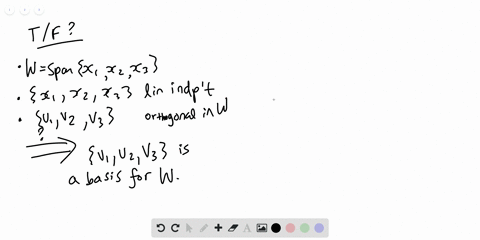 T/F?
• W = Span {x₁, x₂, x₃}
• {x₁, x₂, x₃} lin indp't
• {v₁, v₂, v₃} orthogonal in W
?
⟹ {v₁, v₂, v₃} is
a basis for W.